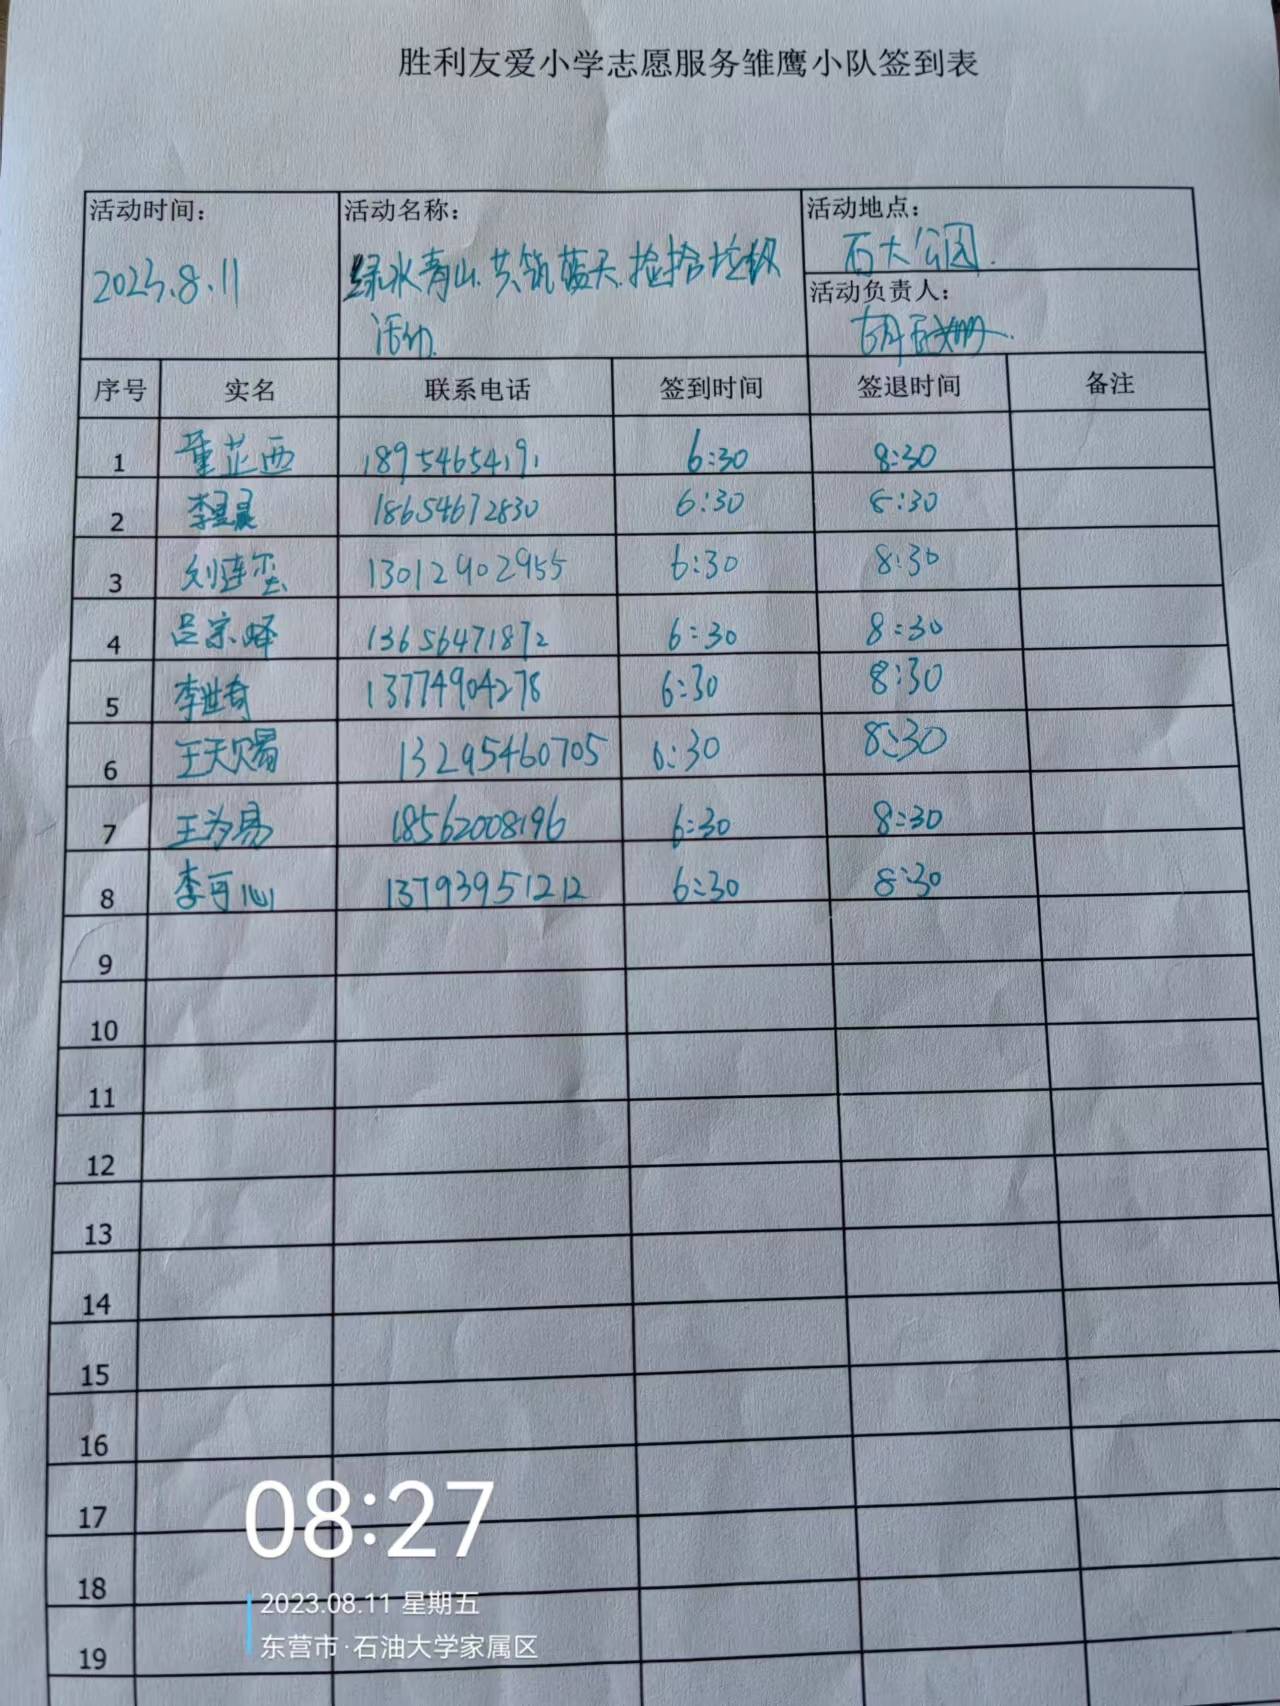 胜利友爱小学志愿服务雏鹰小队签到表
活动时间: 活动名称: 活动地点:
2023.8.11 绿水青山.共筑蓝天.捡拾垃圾 石大公园.
活动. 活动负责人:
序号 实名 联系电话 签到时间 签退时间 备注
1 董芷西 18954654191 6:30 8:30
2 李昱晨 18654672830 6:30 8:30
3 刘 13012902955 6:30 8:30
4 吕宗峄 13656471872 6:30 8:30
5 李世奇 13774904278 6:30 8:30
6 王天赐 13295460705 6:30 8:30
7 王为易 18562008196 6:30 8:30
8 李可心 13793951212 6:30 8:30
9
10
11
12
13
14
15
16
17
18
19
08:27
2023.08.11 星期五
东营市·石油大学家属区